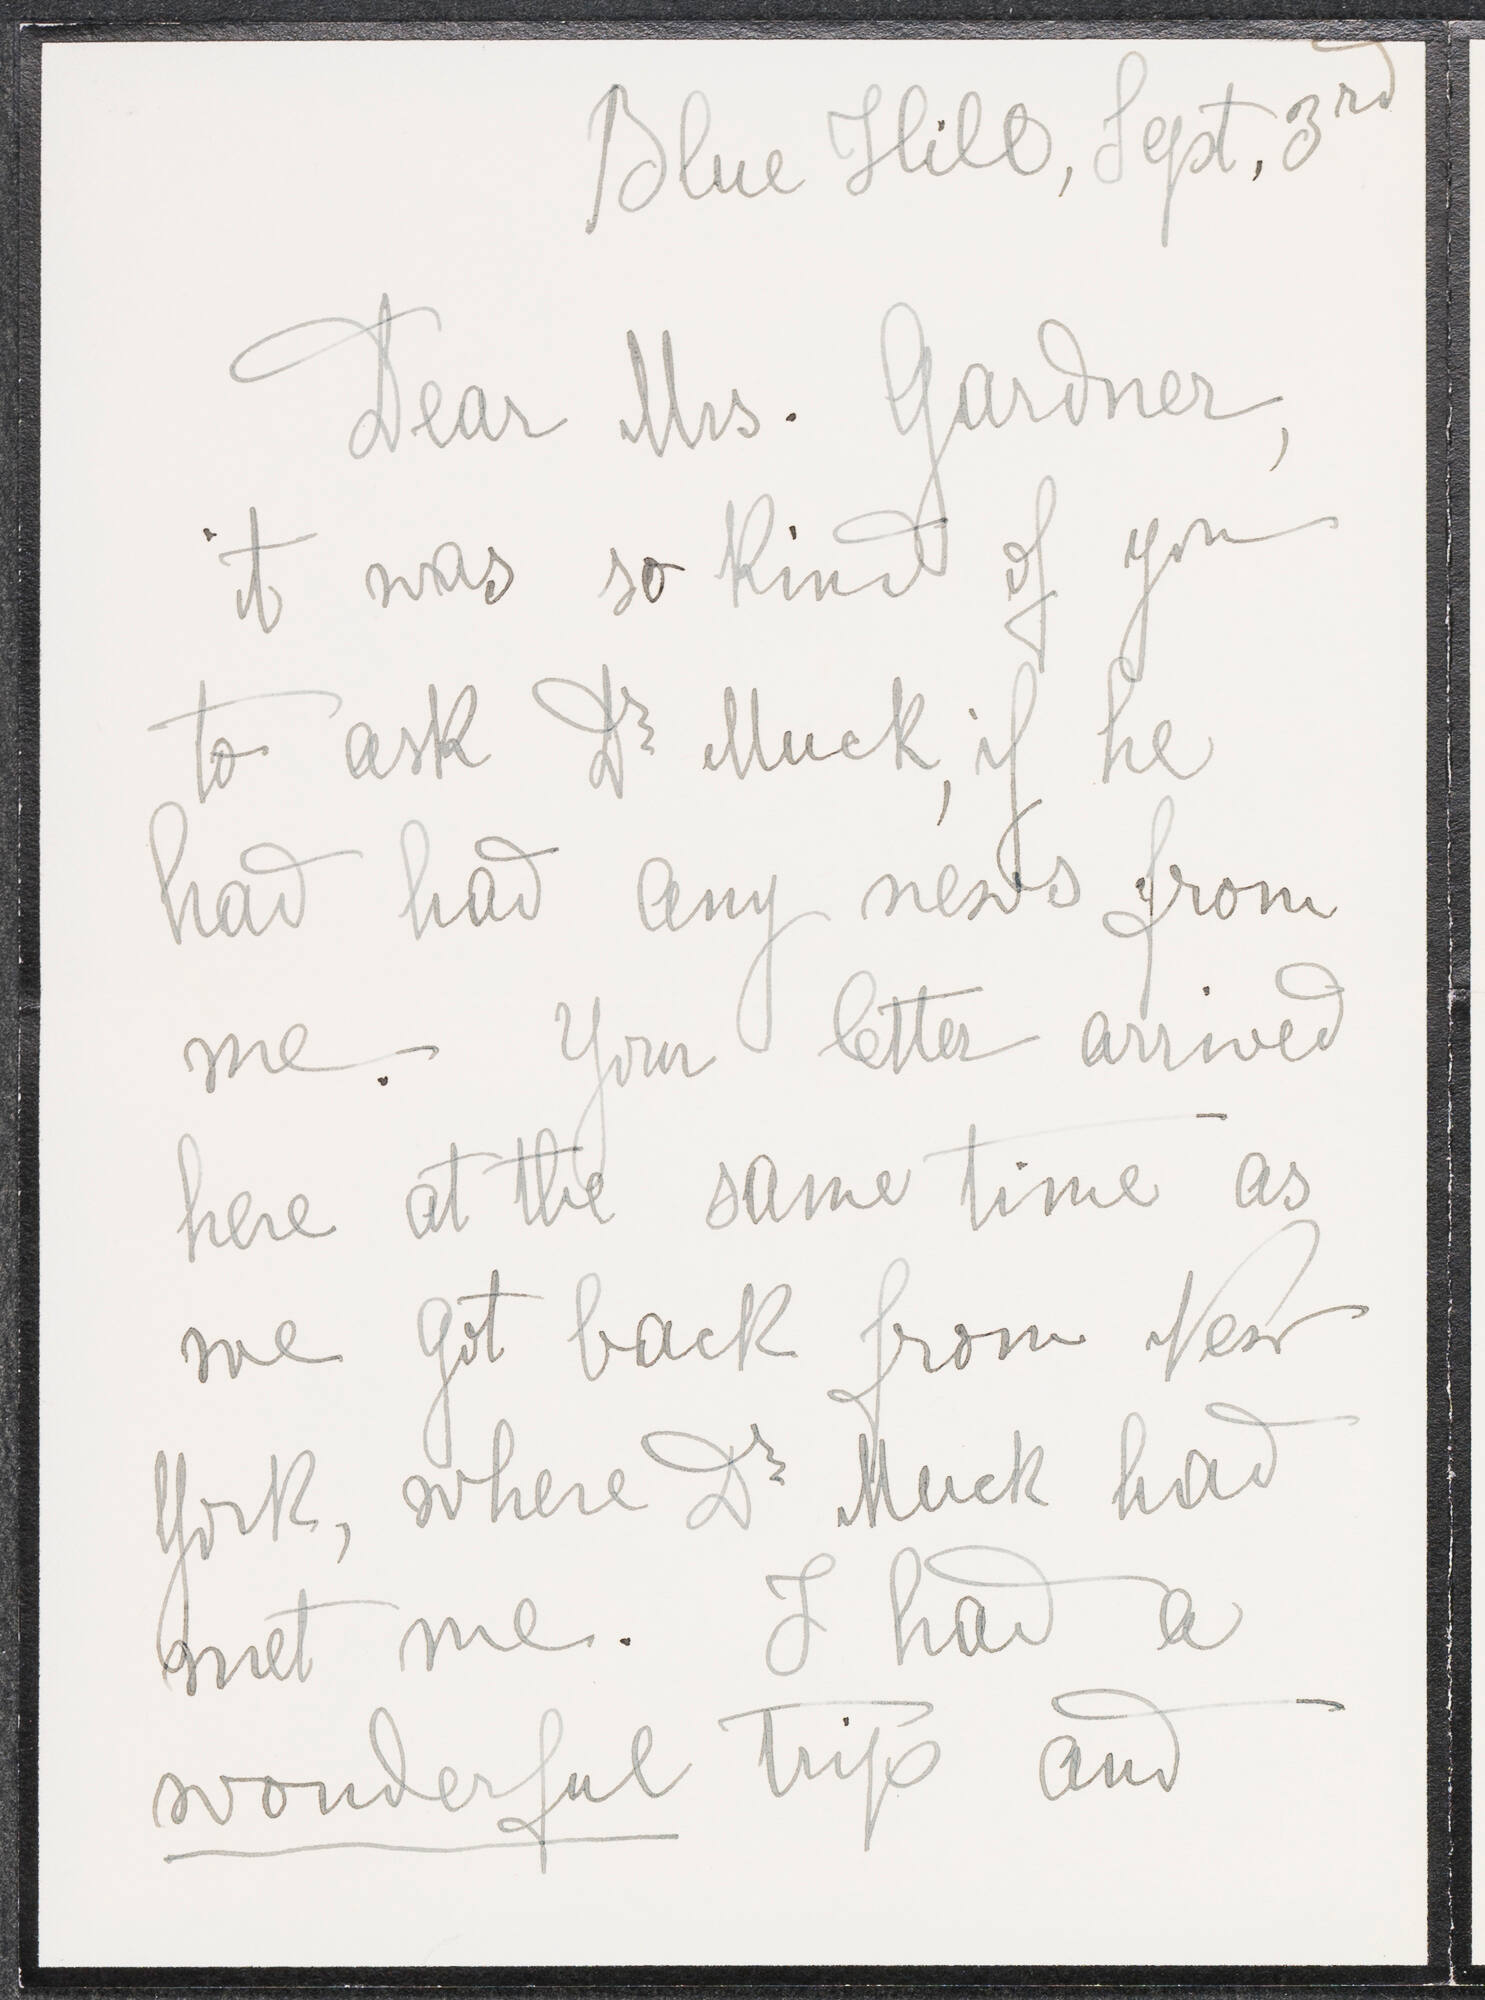 Blue Hill, Sept. 3rd
Dear Mrs. Gardner,
it was so kind of you
to ask Dr Muck, if he
had had any news from
me. Your letter arrived
here at the same time as
we got back from New
York, where Dr Muck had
met me. I had a
wonderful trip and